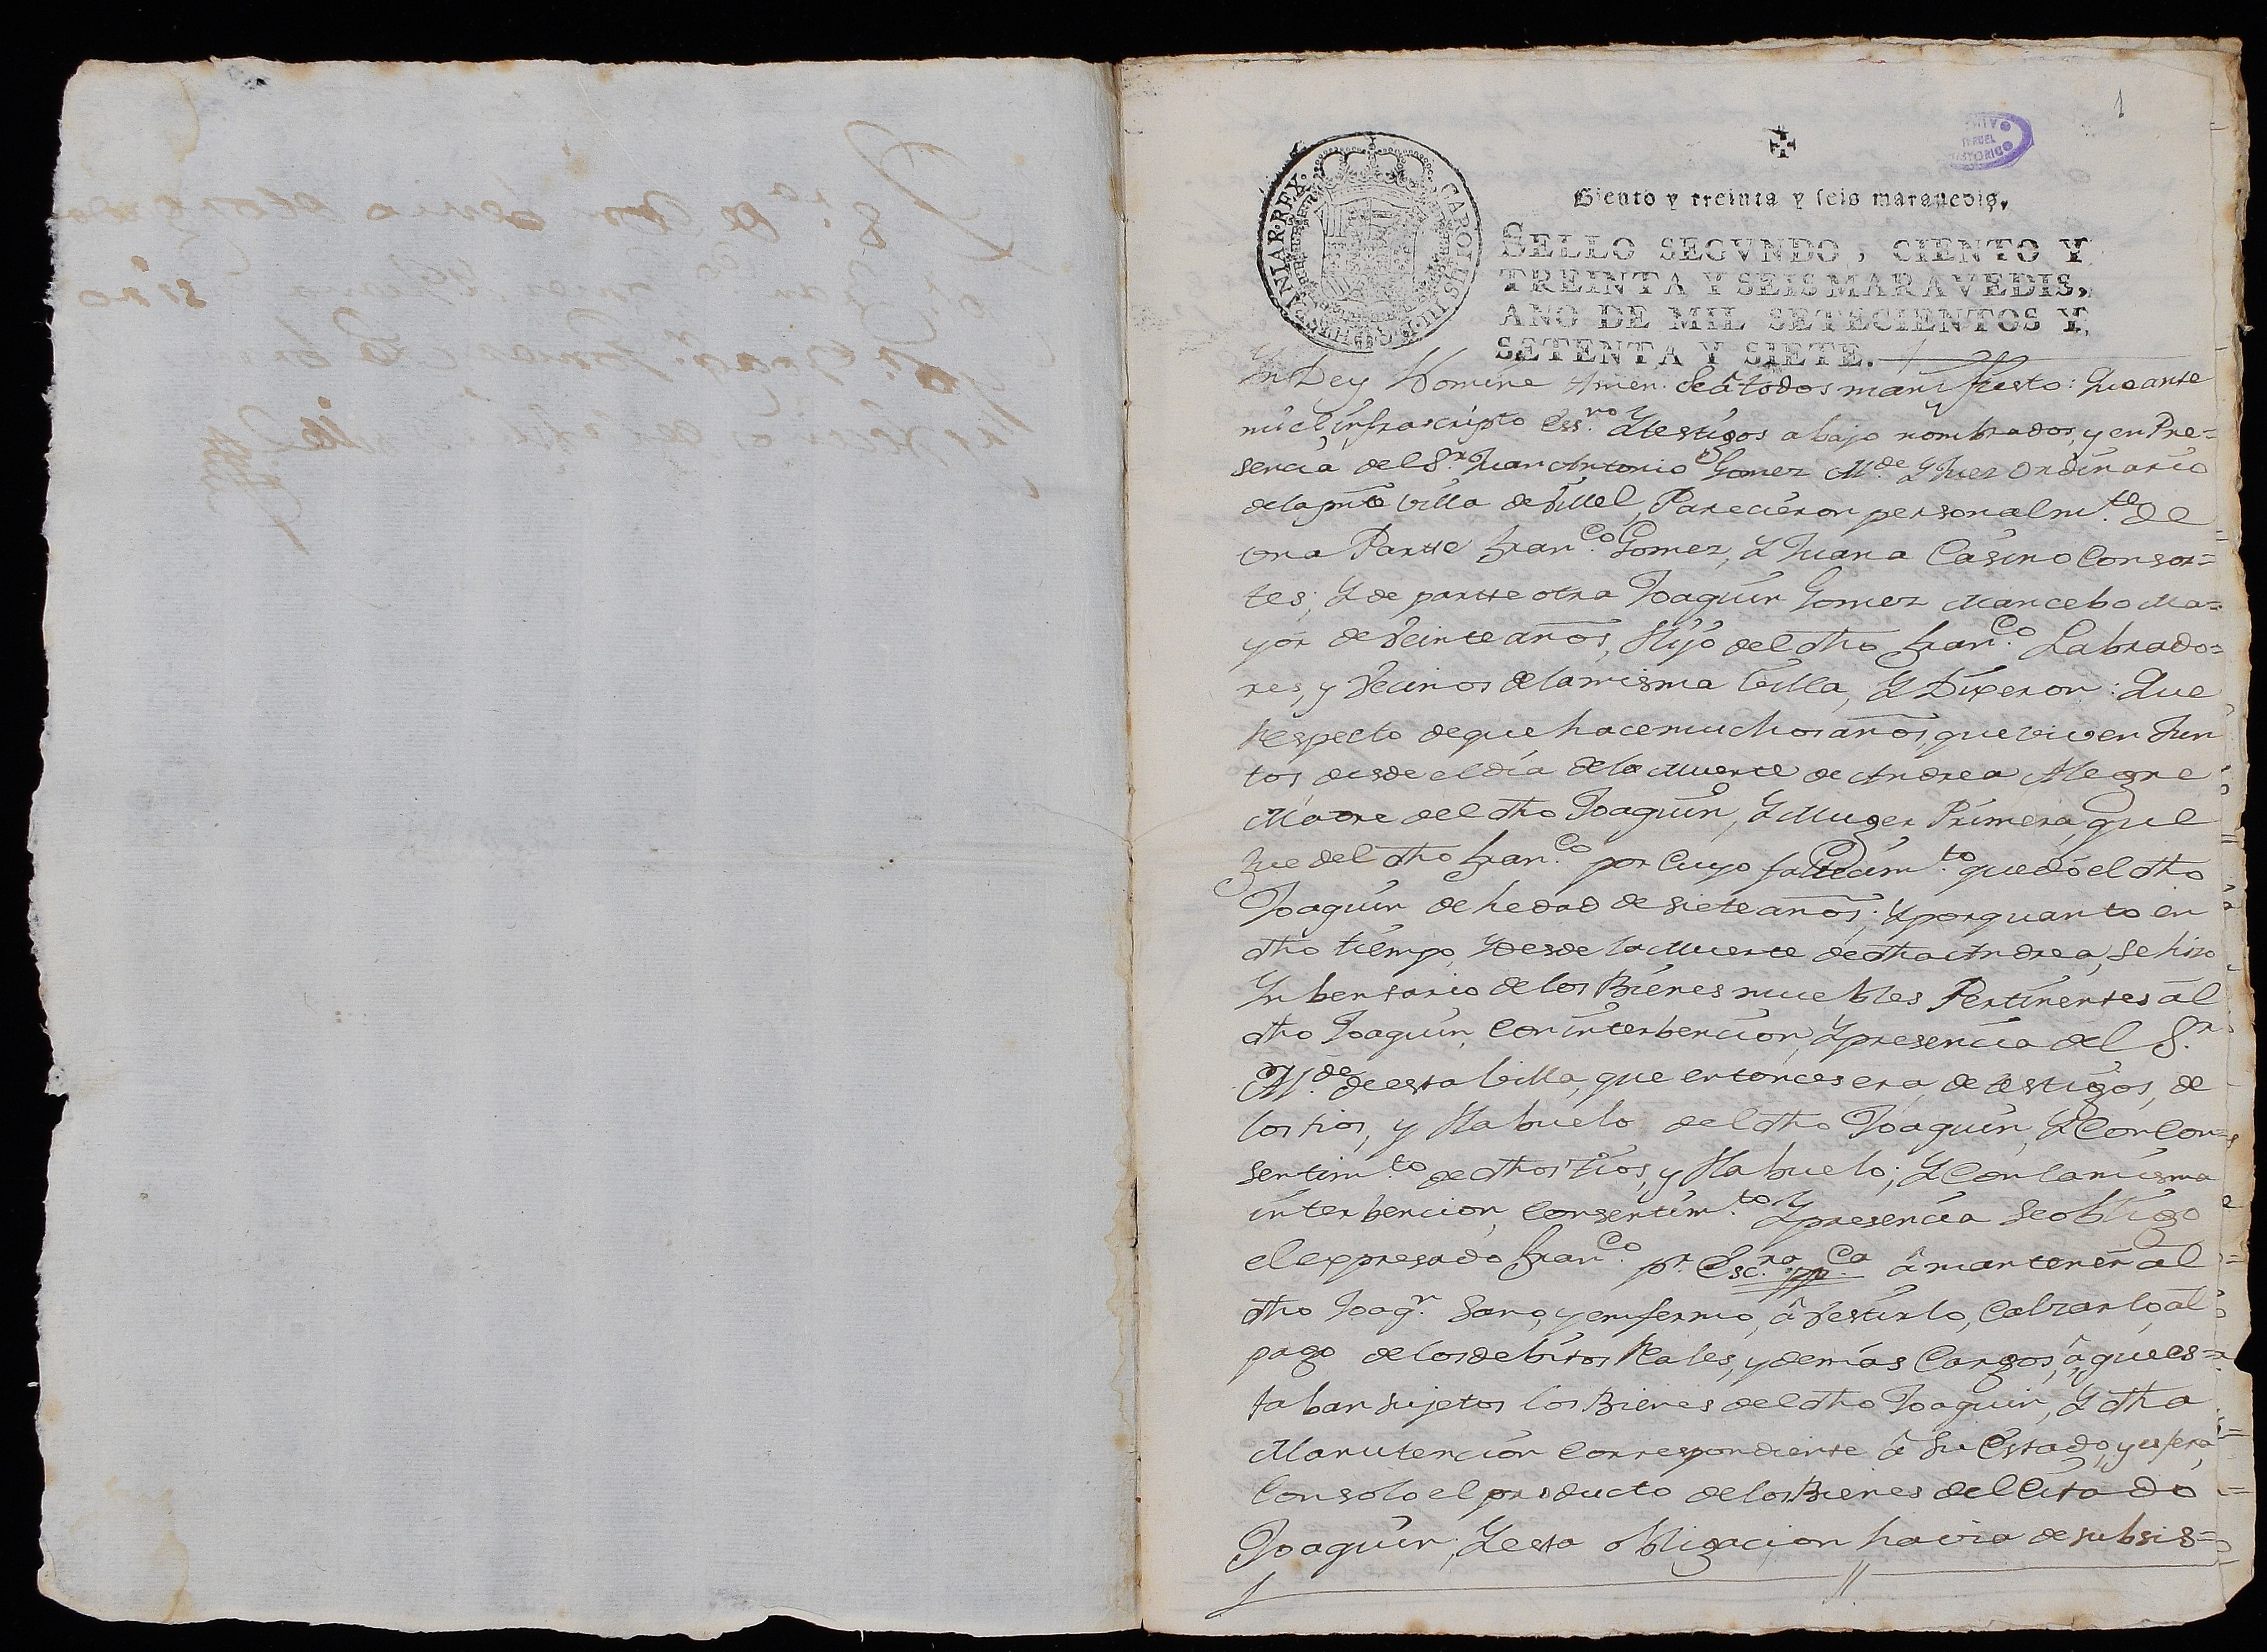 1
Siento y treinta y seis maravedis.
SELLO SEGVNDO, CIENTO Y
TREINTA Y SEIS MARAVEDIS,
AÑO DE MIL SETECIENTOS Y
SETENTA Y SIETE.
CAROLUS III HISPANIAR REX
In Dey Nomine Amen. Seâ todos manifiesto: Que ante
mi el infrascripto Ess.no Y testigos abajo nombrados, y en Pre=
sencia del S.r Juan Antonio Gomez Al.de Y Juez Ordinario
de la pnte Villa de Villel, Parecieron personalm.te de
una Partte Fran.co Gomez, Y Juana Casino Consor=
tes; Y de partte otra Joaquin Gomez Mancebo Ma=
yor de Veinte años, Hijo del dho Fran.co Labrado=
res, y Vecinos de la misma Villa, Y Dixeron: Que
respecto de que hace muchos años, que viven Jun
tos desde el día de la Muerte de Andrea Alegre
Madre del dho Joaquin, Y Muger Primera, que
fue del dho Fran.co por Cuyo fallecim.to quedó el dho
Joaquin de hedad de siete años; Y por quanto en
dho tiempo, Y desde la Muerte de dha Andrea, se hizo
Inbentario de los Bienes muebles Pertinentes al
dho Joaquin, con interbencion, Y presencia del S.r
Al.de de esta Villa, que entonces era, de testigos, de
los tios, y Habuelo del dho Joaquin, Y Con Con=
sentim.to de dhos Tios, y Habuelo; Y Con la misma
interbencion, Consentim.to Y presencia se obligo
el expresado Fran.co p.r Esc.ra pp.ca â mantener al
dho Joaq.n Sano, y enfermo, â Vestirlo, Calzarlo, al
pago de los debitos Reales, y demás Cargos, â que es=
taban sujetos los Bienes del dho Joaquin, Y dha
Manutencion Correspondiente â Su Estado, y esfera,
Con solo el producto de los Bienes del Citado
Joaquin, Y esta obligacion havia de subsis=